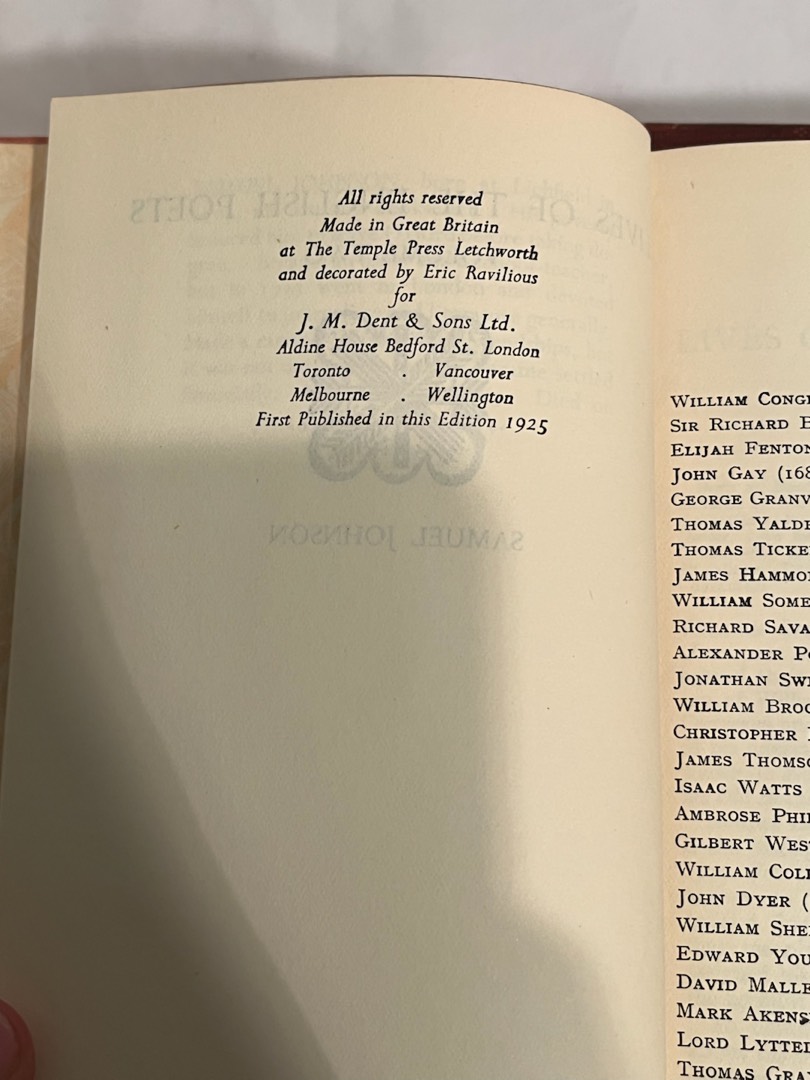 All rights reserved
Made in Great Britain
at The Temple Press Letchworth
and decorated by Eric Ravilious
for
J. M. Dent & Sons Ltd.
Aldine House Bedford St. London
Toronto . Vancouver
Melbourne . Wellington
First Published in this Edition 1925
SAMUEL JOHNSON
WILLIAM
SIR RICHARD
ELIJAH FENTON
JOHN GAY
GEORGE
THOMAS
THOMAS
JAMES
WILLIAM
RICHARD
ALEXANDER
JONATHAN
WILLIAM
CHRISTOPHER
JAMES
ISAAC WATTS
AMBROSE
GILBERT
WILLIAM
JOHN DYER (
WILLIAM
EDWARD
DAVID
MARK
LORD
THOMAS